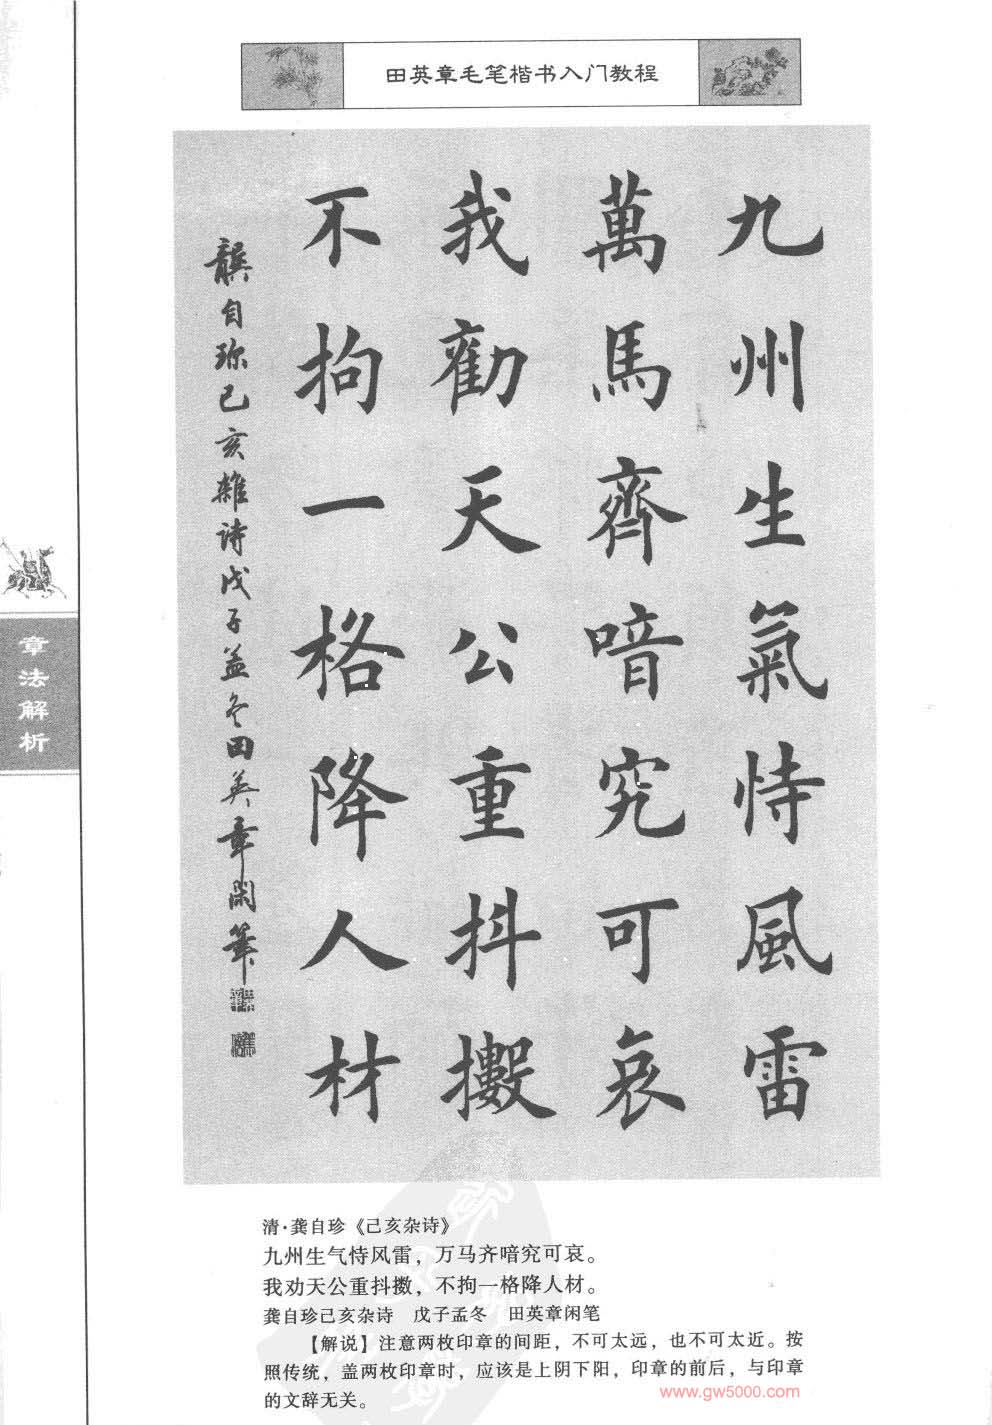 田英章毛笔楷书入门教程
九州生氣恃風雷
萬馬齊喑究可哀
我勸天公重抖擻
不拘一格降人材
龔自珍己亥雜诗戊子孟冬田英章闲筆
章法解析
清·龚自珍《己亥杂诗》
九州生气恃风雷，万马齐喑究可哀。
我劝天公重抖擞，不拘一格降人材。
龚自珍己亥杂诗　戊子孟冬　田英章闲笔
【解说】注意两枚印章的间距，不可太远，也不可太近。按
照传统，盖两枚印章时，应该是上阴下阳，印章的前后，与印章
的文辞无关。
www.gw5000.com